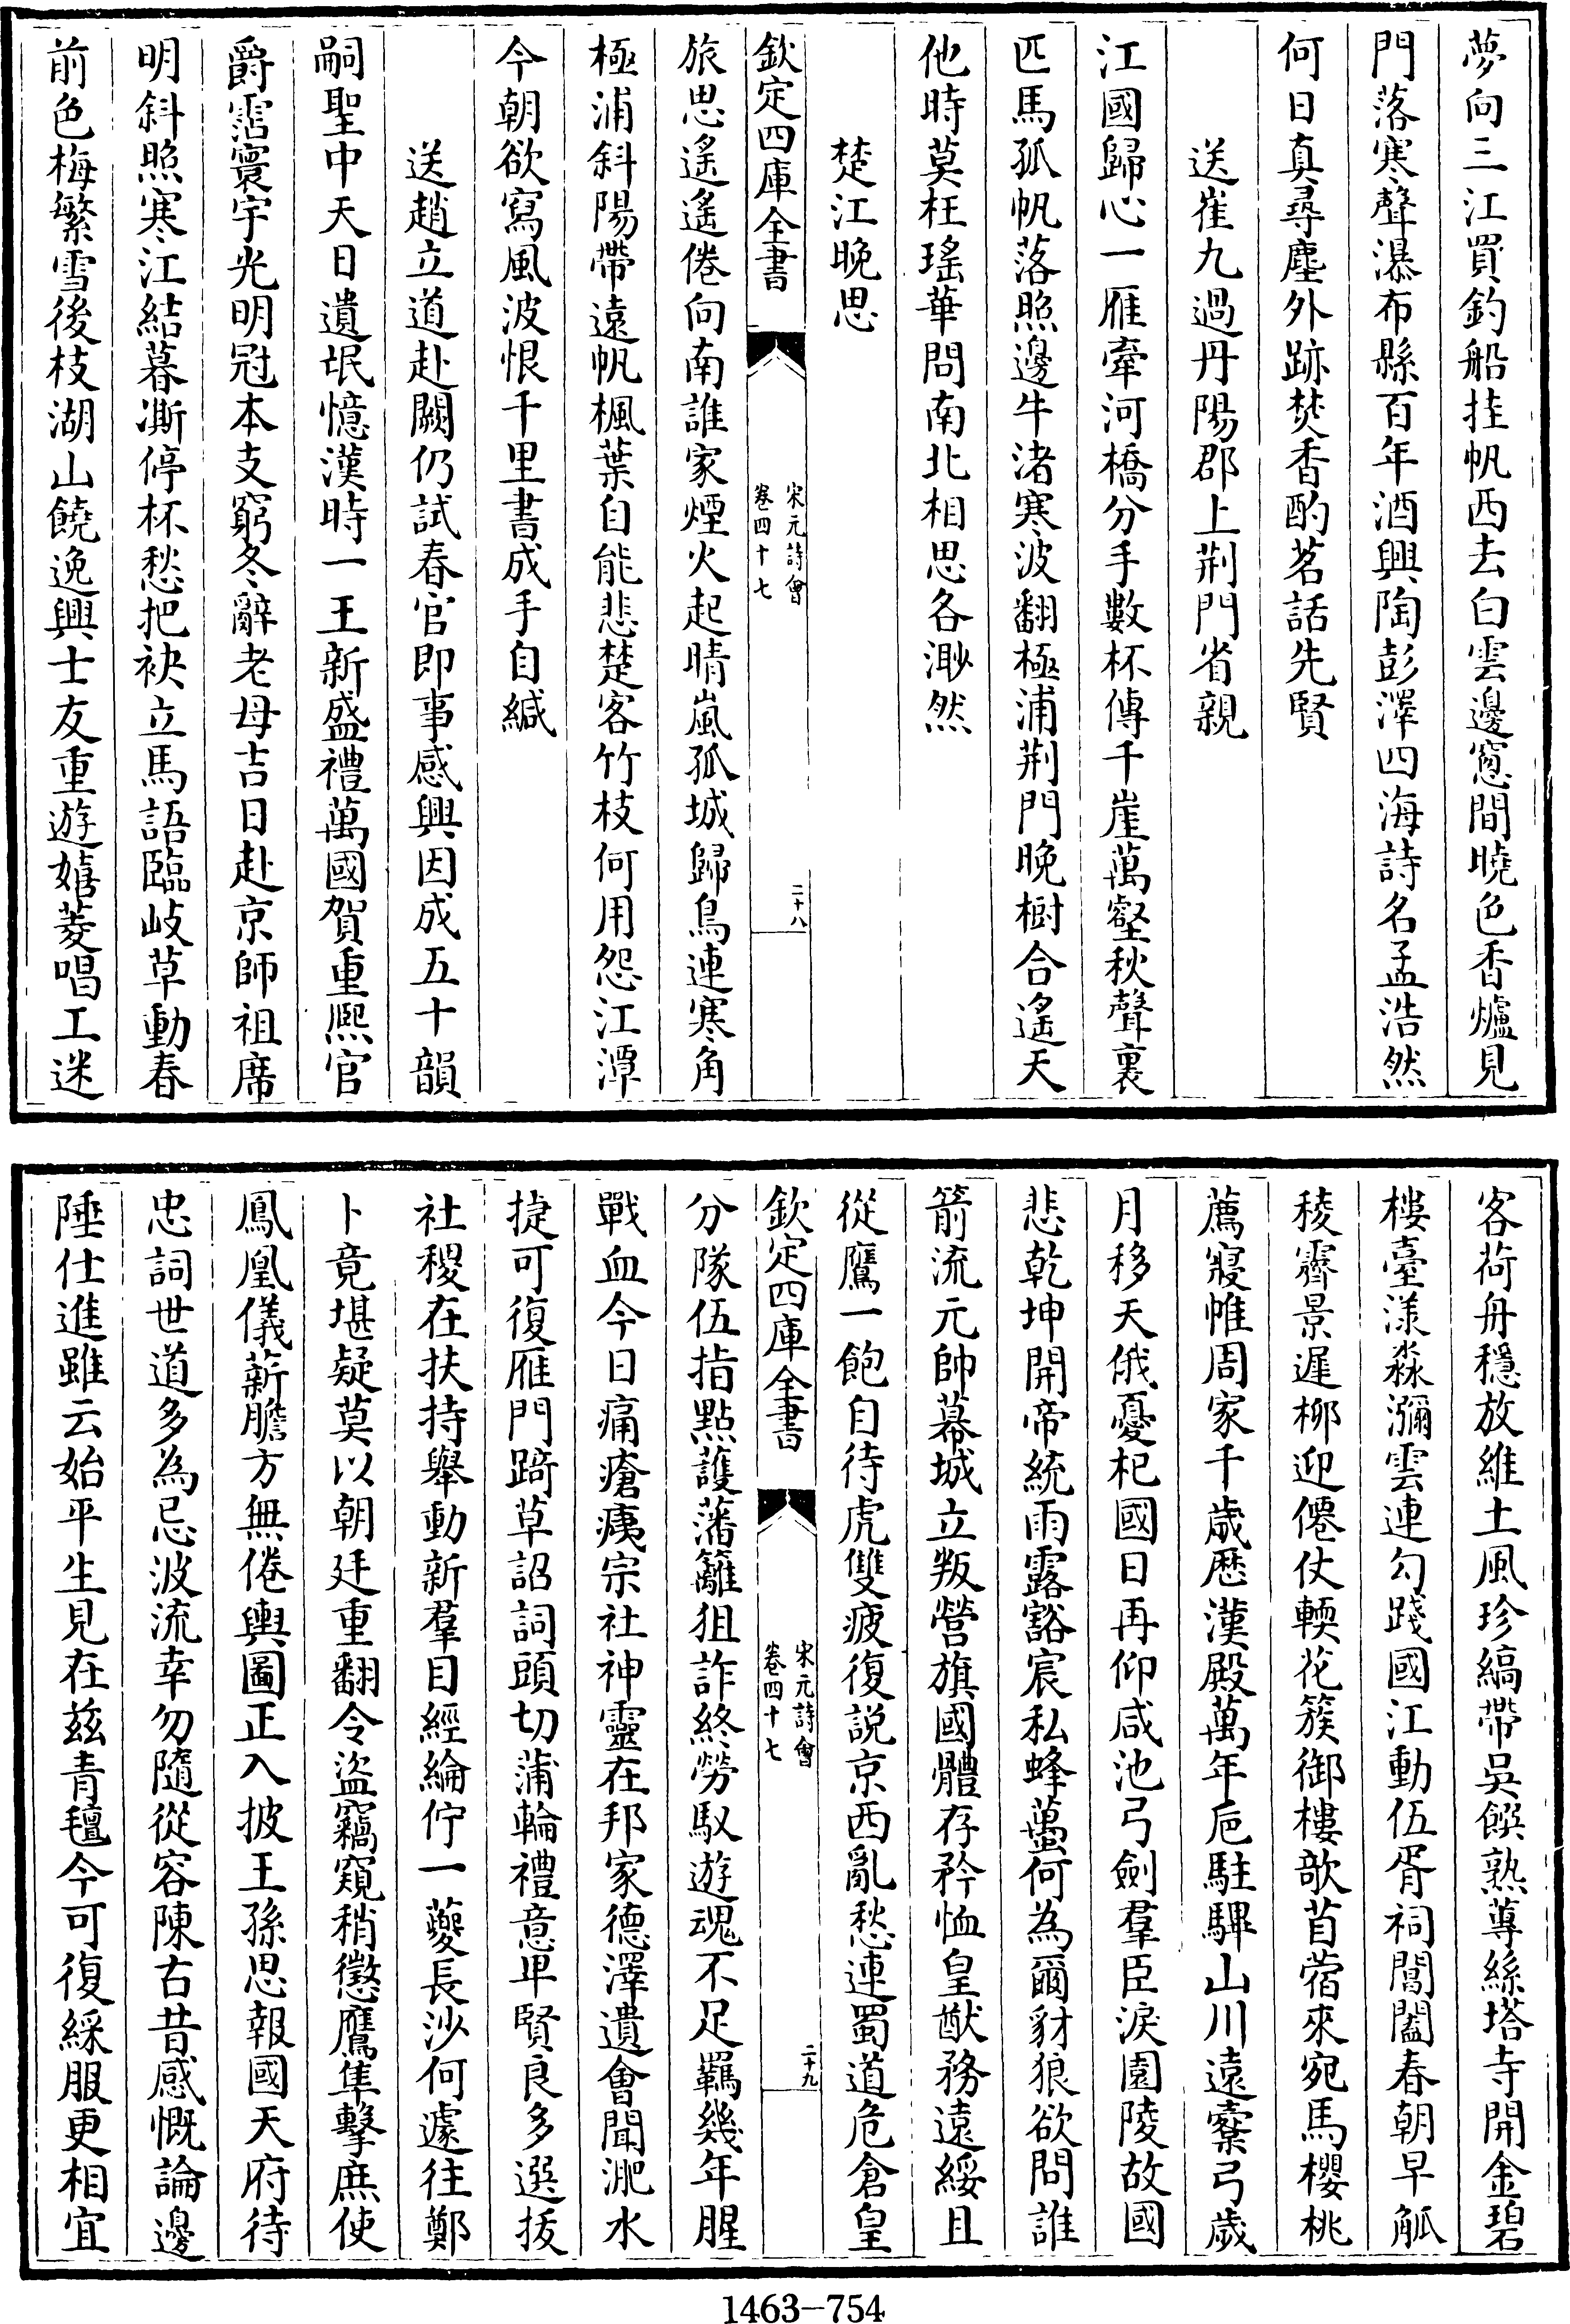 夢向三江買釣船挂帆西去白雲邊窻間曉色香爐見
門落寒聲瀑布縣百年酒興陶彭澤四海詩名孟浩然
何日真尋塵外跡焚香酌茗話先賢
送崔九過丹陽郡上荆門省親
江國歸心一雁牽河橋分手數杯傳千崖萬壑秋聲裏
匹馬孤帆落照邊牛渚寒波翻極浦荆門晚樹合遙天
他時莫枉瑤華問南北相思各渺然
楚江晚思
欽定四庫全書
宋元詩會
卷四十七
二十八
旅思遙遙倦向南誰家煙火起晴嵐孤城歸鳥連寒角
極浦斜陽帶遠帆楓葉自能悲楚客竹枝何用怨江潭
今朝欲寫風波恨千里書成手自緘
送趙立道赴闕仍試春官即事感興因成五十韻
嗣聖中天日遺氓憶漢時一王新盛禮萬國賀重熈官
爵霑寰宇光明冠本支窮冬辭老母吉日赴京師祖席
明斜照寒江結暮凘停杯愁把袂立馬語臨岐草動春
前色梅繁雪後枝湖山饒逸興士友重遊嬉菱唱工迷
客荷舟穩放維土風珍縞帶吳饌熟蓴絲塔寺開金碧
樓臺漾淼瀰雲連勾踐國江動伍胥祠閶闔春朝早觚
稜霽景遲柳迎僊仗輭花簇御樓欹苜蓿來宛馬櫻桃
薦寢帷周家千歲歴漢殿萬年巵駐驆山川遠櫜弓歲
月移天俄憂杞國日再仰咸池弓劍羣臣淚園陵故國
悲乾坤開帝統雨露豁宸私蜂蠆何為爾豺狼欲問誰
箭流元帥幕城立叛營旗國體存矜恤皇猷務遠綏且
從鷹一飽自待虎雙疲復說京西亂愁連蜀道危倉皇
欽定四庫全書
宋元詩會
卷四十七
二十九
分隊伍指點護藩籬狙詐終勞馭遊魂不足羈幾年腥
戰血今日痛瘡痍宗社神靈在邦家德澤遺會聞淝水
捷可復雁門踦草詔詞頭切蒲輪禮意卑賢良多選拔
社稷在扶持舉動新羣目經綸佇一夔長沙何遽往鄭
卜竟堪疑莫以朝廷重翻令盜竊窺稍懲鷹隼擊庶使
鳳凰儀薪膽方無倦輿圖正入披王孫思報國天府待
忠詞世道多為忌波流幸勿隨從容陳古昔感慨論邊
陲仕進雖云始平生見在兹青氊今可復綵服更相宜
1463-754